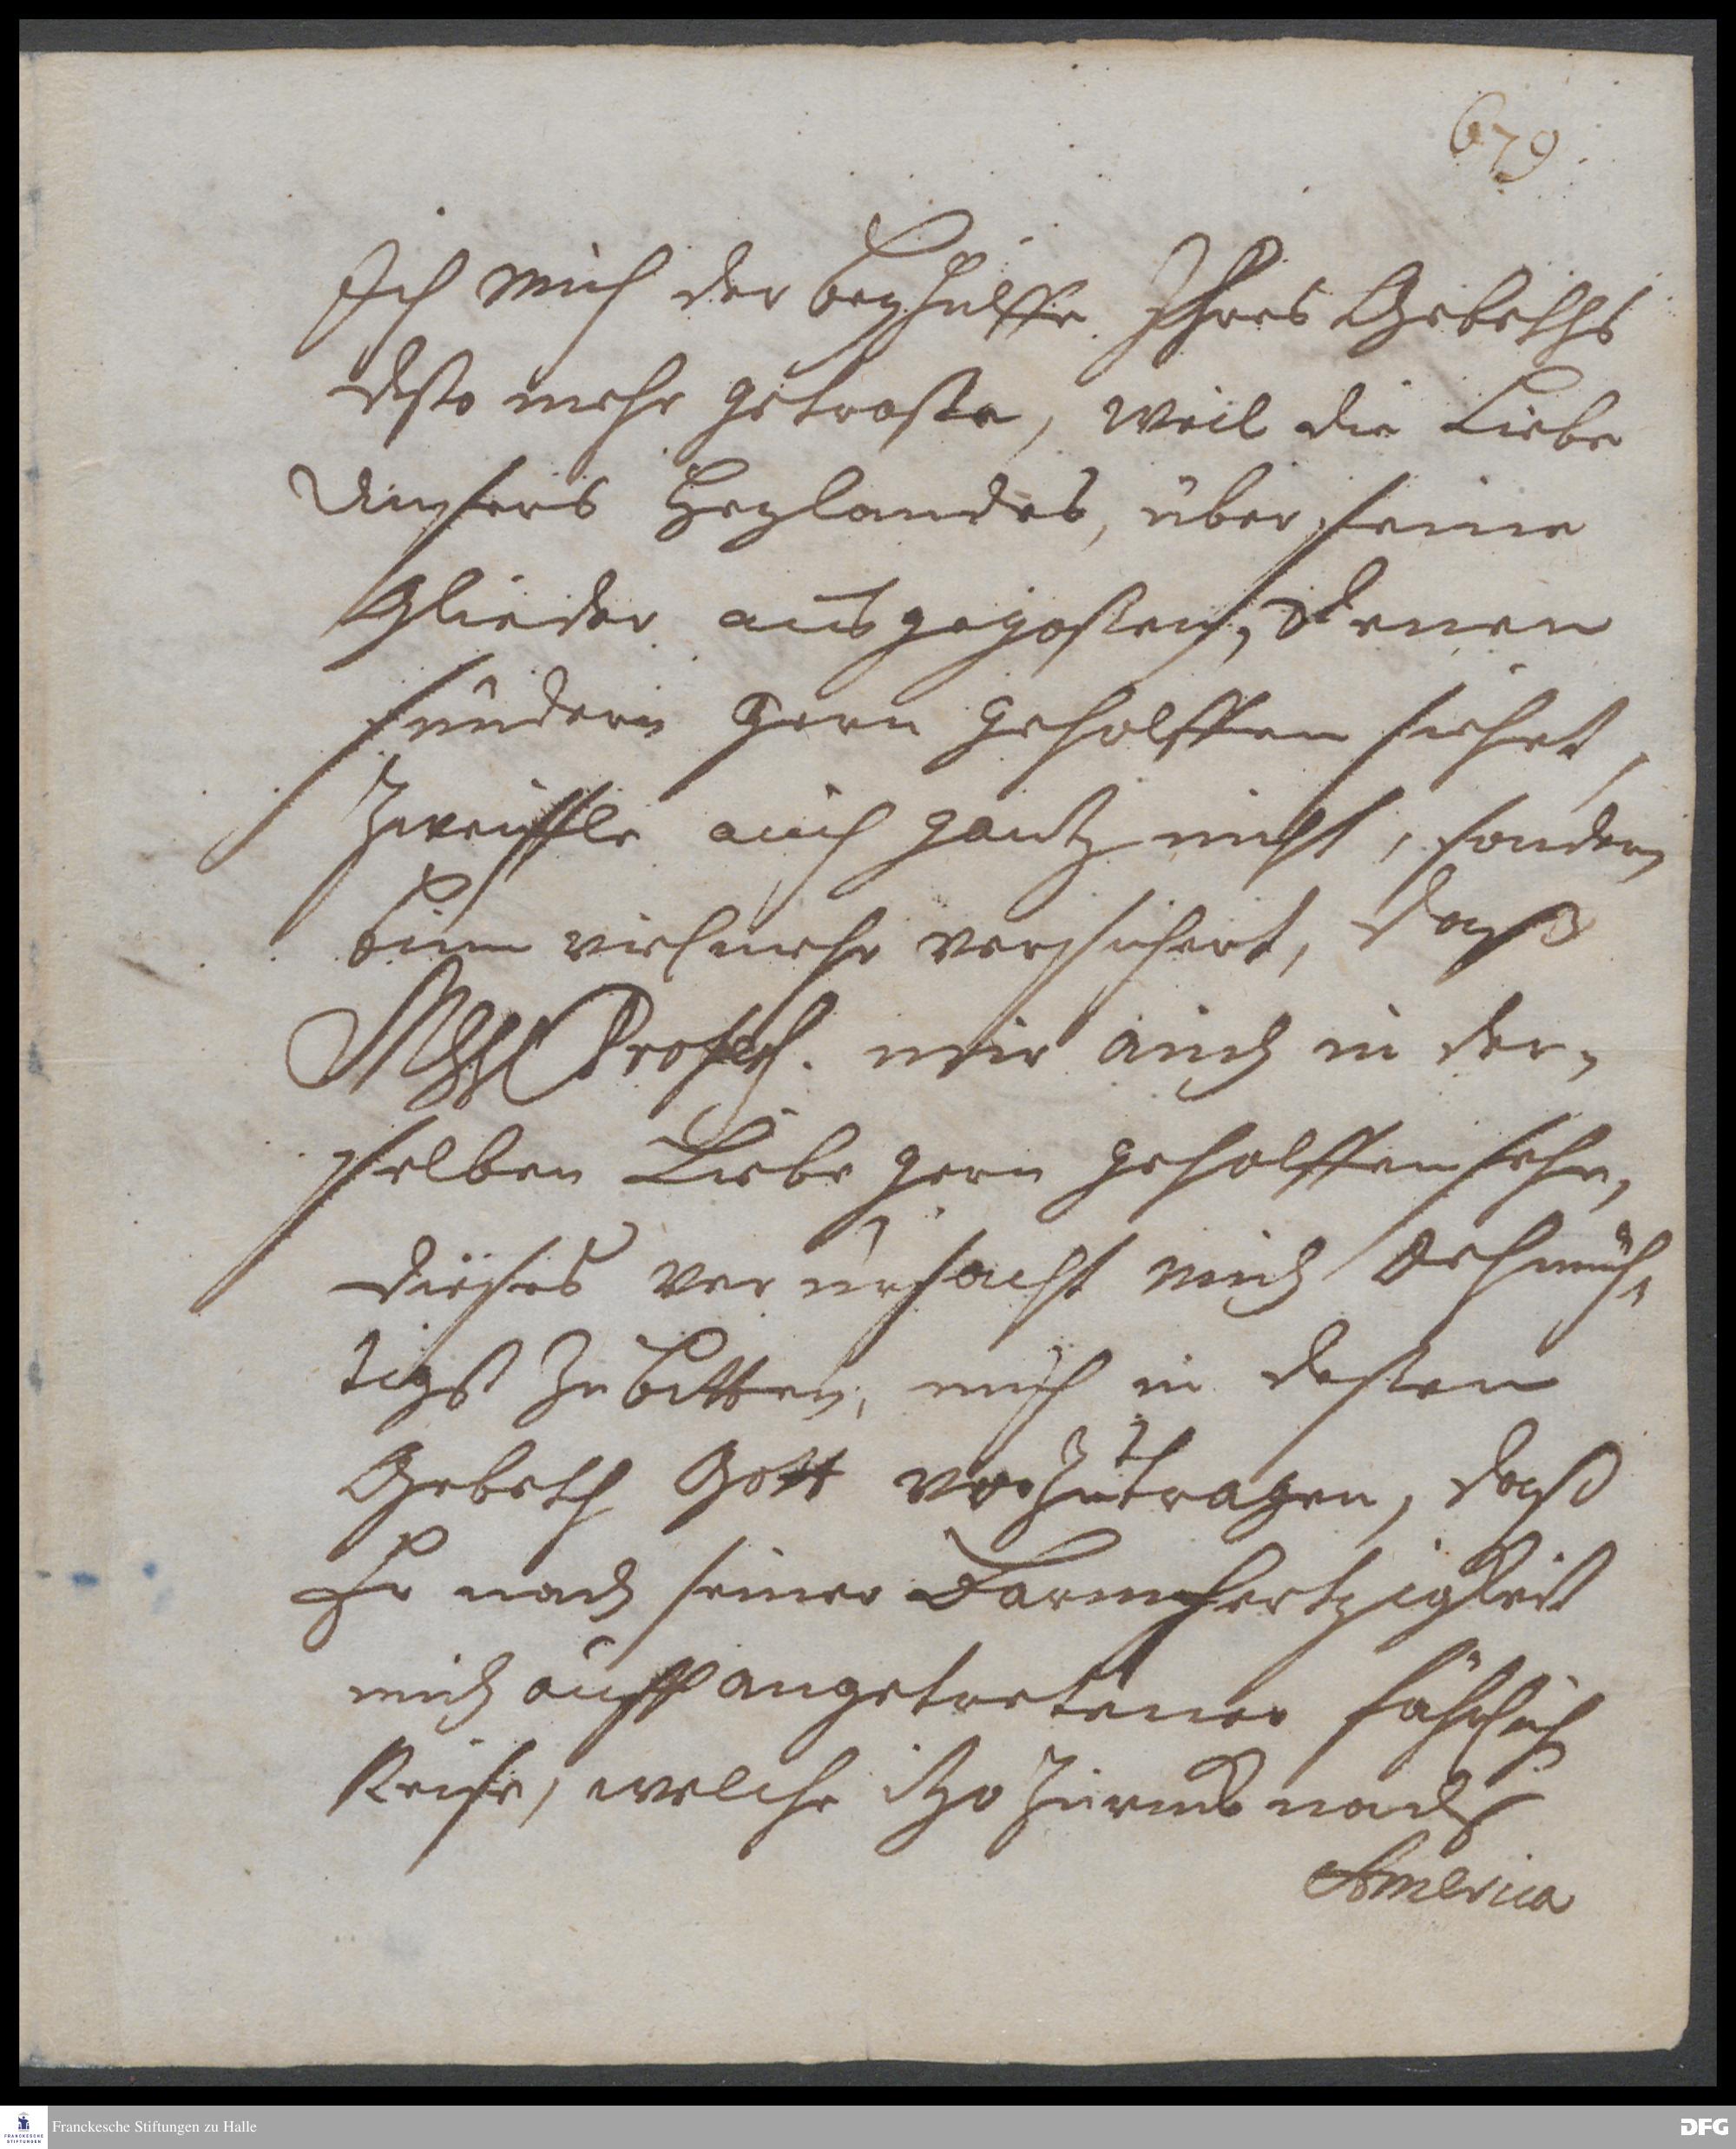 679
Ich mich der beyhülffe Ihres Gebeths
desto mehr getroste, weil die Liebe
Unsers Heylandes, über seine
Glieder ausgegossen, denen
sündern gern geholffen siehet,
Zweiffle auch gantz nicht, sondern
binn vielmehr versichert, daß
Profess. mir auch in der-
selben Liebe gern geholffen sehe,
dieses verursacht mich dehmüh-
tigst zu bitten, mich in dessen
Gebeth Gott vorzutragen, daß
Er nach seiner Barmhertzigkeit
mich auff angetretener fährlich
Reise, welche itzo zurück nach
America
Franckesche Stiftungen zu Halle
FRANCKESCHE STIFTUNGEN
DFG